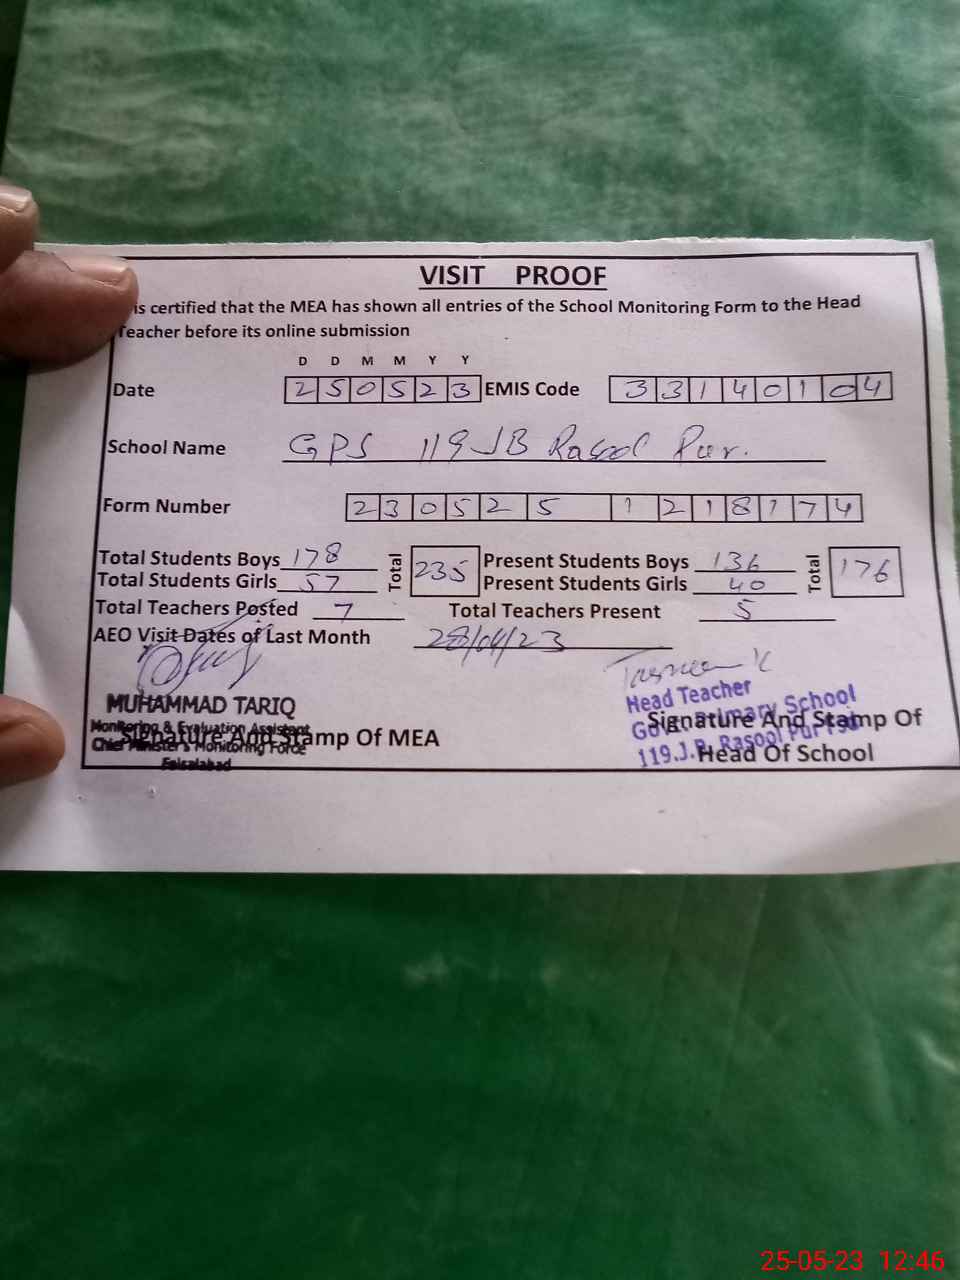 VISIT PROOF
is certified that the MEA has shown all entries of the School Monitoring Form to the Head
Teacher before its online submission
D D M M Y Y
Date 250523 EMIS Code 33140104
School Name GPS 119 JB Rasool Pur.
Form Number 230525 1218174
Total Students Boys 178 Total 235 Present Students Boys 136 Total 176
Total Students Girls 57 Present Students Girls 40
Total Teachers Posted 7 Total Teachers Present 5
AEO Visit Dates of Last Month 28/04/23
MUHAMMAD TARIQ
Monitoring & Evaluation Assistant
Chief Minister's Monitoring Force
Faisalabad
Signature And Stamp Of MEA
Tasneem K
Head Teacher
Govt. Primary School
119.J.B. Rasool Pur Fsd
Signature And Stamp Of
Head Of School
25-05-23 12:46